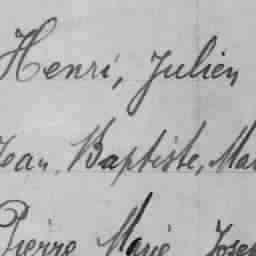 Henri, Julien
Jean, Baptiste, Ma
Pierre Marie Jose